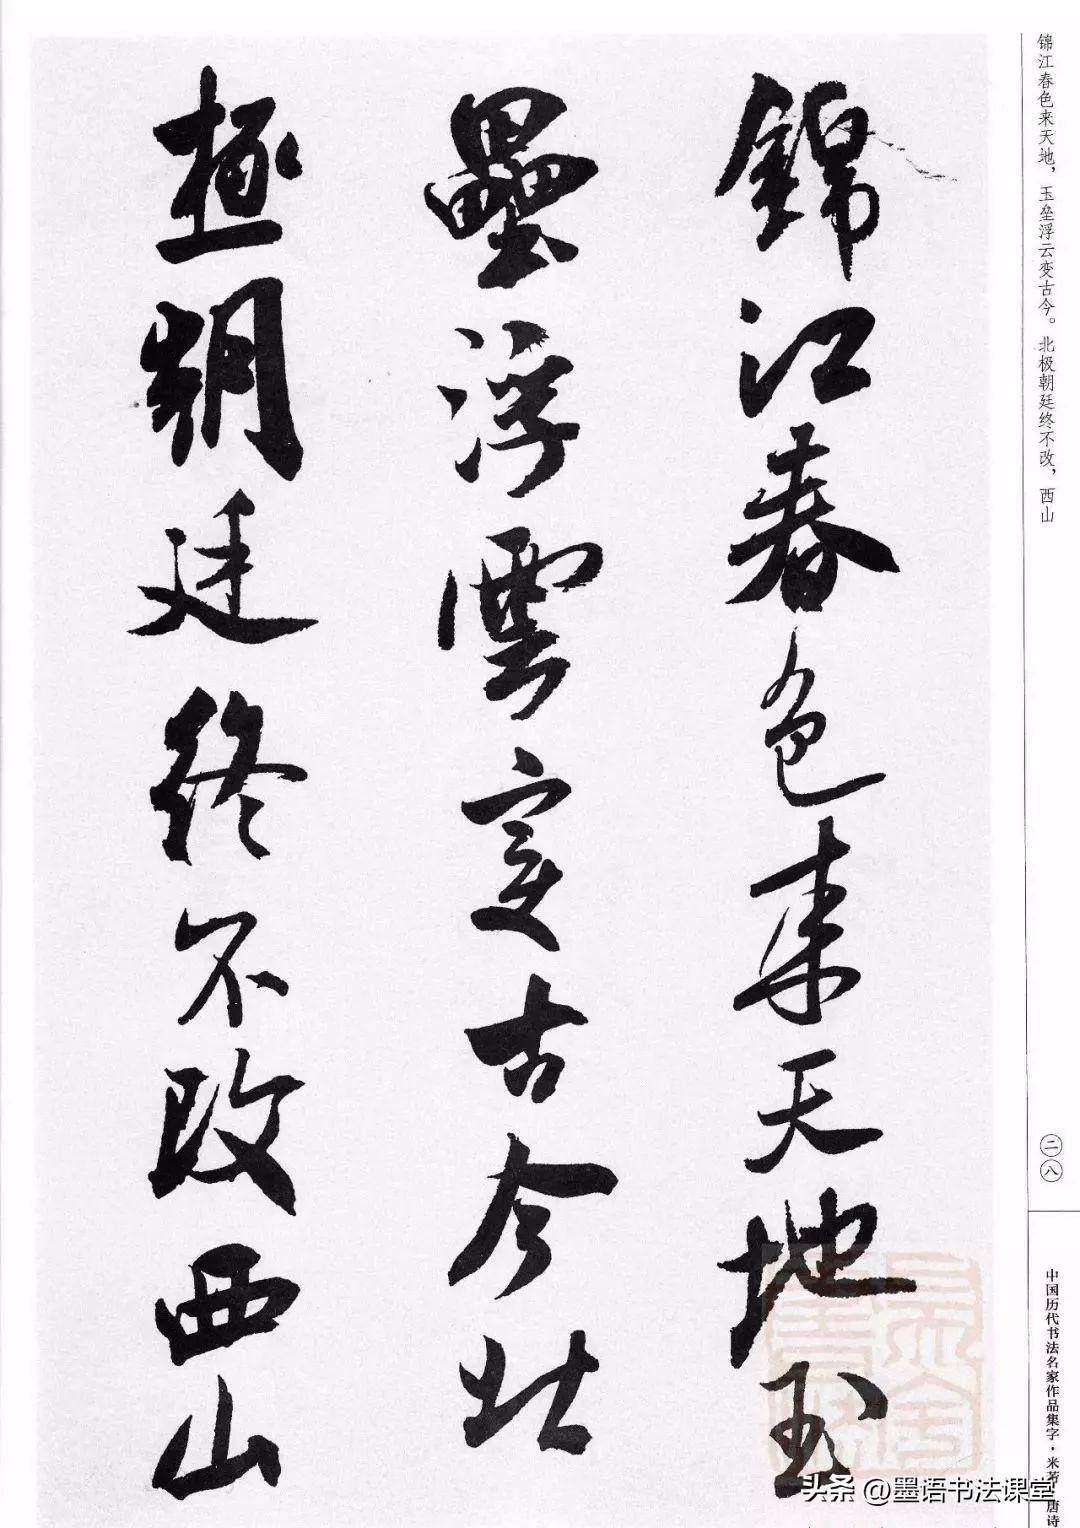 錦江春色来天地玉
壘浮雲変古今北
極朝廷終不改西山
锦江春色来天地，玉垒浮云变古今。北极朝廷终不改，西山
二八
中国历代书法名家作品集字·米芾 唐诗
头条 @墨语书法课堂